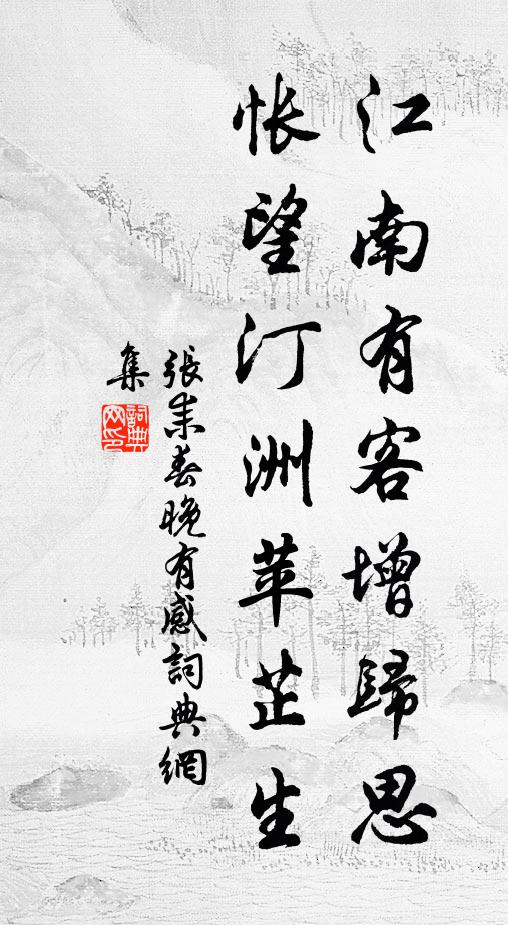 江南有客增歸思
悵望汀洲苹芷生
張耒春晚有感詞典網
集
詞典
网印